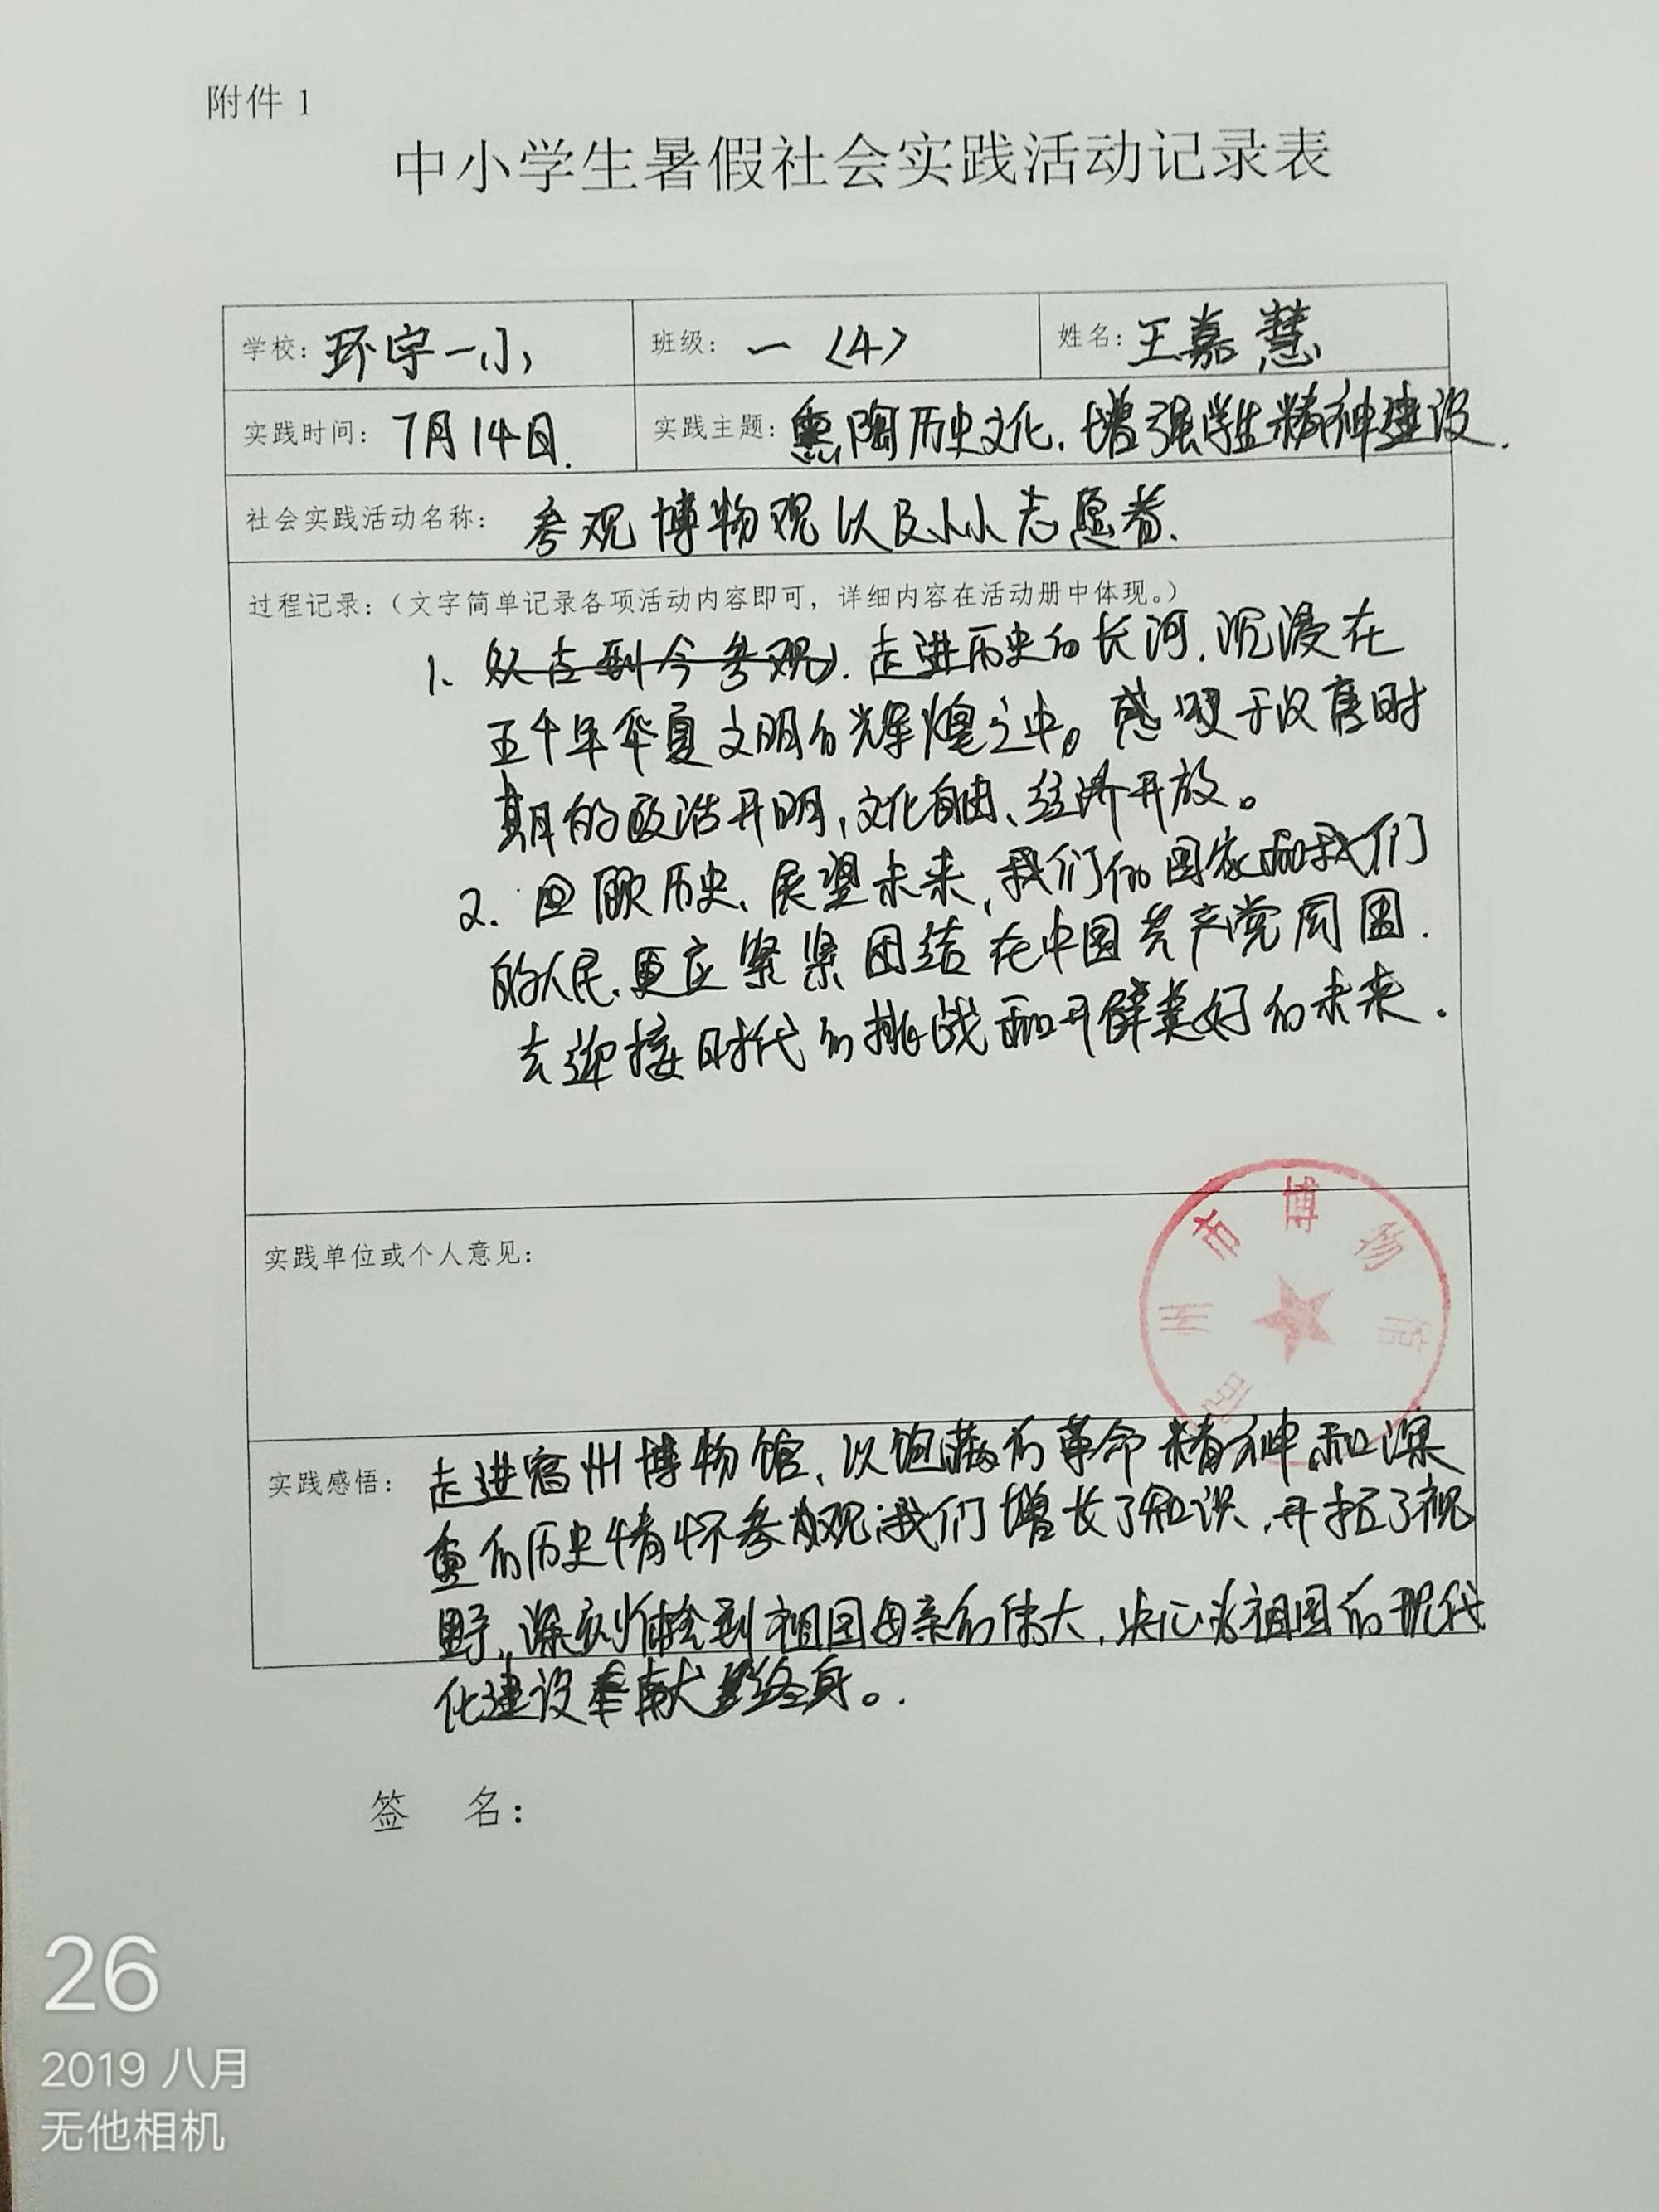 附件 1
中小学生暑假社会实践活动记录表
学校：环宇一小
班级：一〈4〉
姓名：王嘉慧
实践时间：7月14日.
实践主题：熏陶历史文化.增强学生精神建设.
社会实践活动名称：参观博物观以及小小志愿者.
过程记录：（文字简单记录各项活动内容即可，详细内容在活动册中体现。）
1、从古到今参观）.走进历史的长河.沉浸在
五千年华夏文明的辉煌之中。感叹于汉唐时
期的政治开明，文化自由、经济开放。
2.回顾历史、展望未来，我们的国家和我们
的人民.更应紧紧团结在中国共产党周围.
去迎接时代的挑战和开辟美好的未来.
实践单位或个人意见：
宿州市博物馆
实践感悟：走进宿州博物馆、以饱满的革命精神和深
重的历史情怀参观，我们增长了知识，开拓了视
野，深刻体会到祖国母亲的伟大，决心为祖国的现代
化建设奉献终身。.
签 名：
26
2019 八月
无他相机